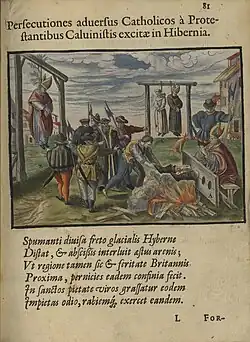 81
Persecutiones aduersus Catholicos à Prote-
stantibus Caluinistis excitæ in Hibernia.
Spumanti diuisa freto glacialis Hyberne
Distat, & abscissis interluit æstus arenis;
Vt regione tamen sic & feritate Britannis
Proxima, pernicies eadem confinia fecit.
In sanctos pietate viros grassatur eodem
Impietas odio, rabiemq́, exercet eandem.
L FOR-